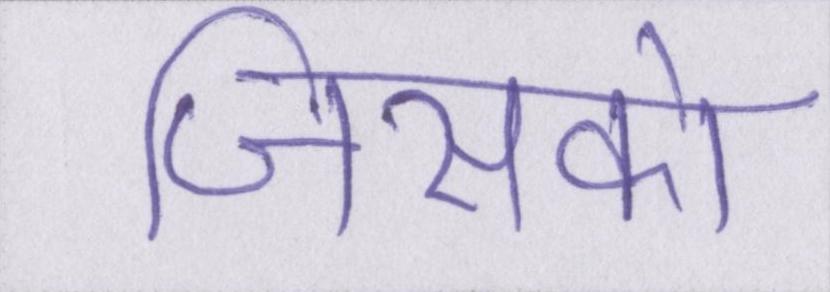 जिसको